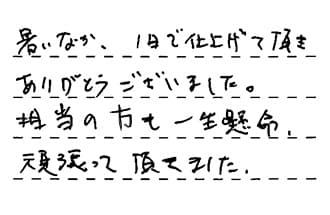 暑いなか、1日で仕上げて頂き
ありがとうございました。
担当の方も一生懸命、
頑張って頂きました。